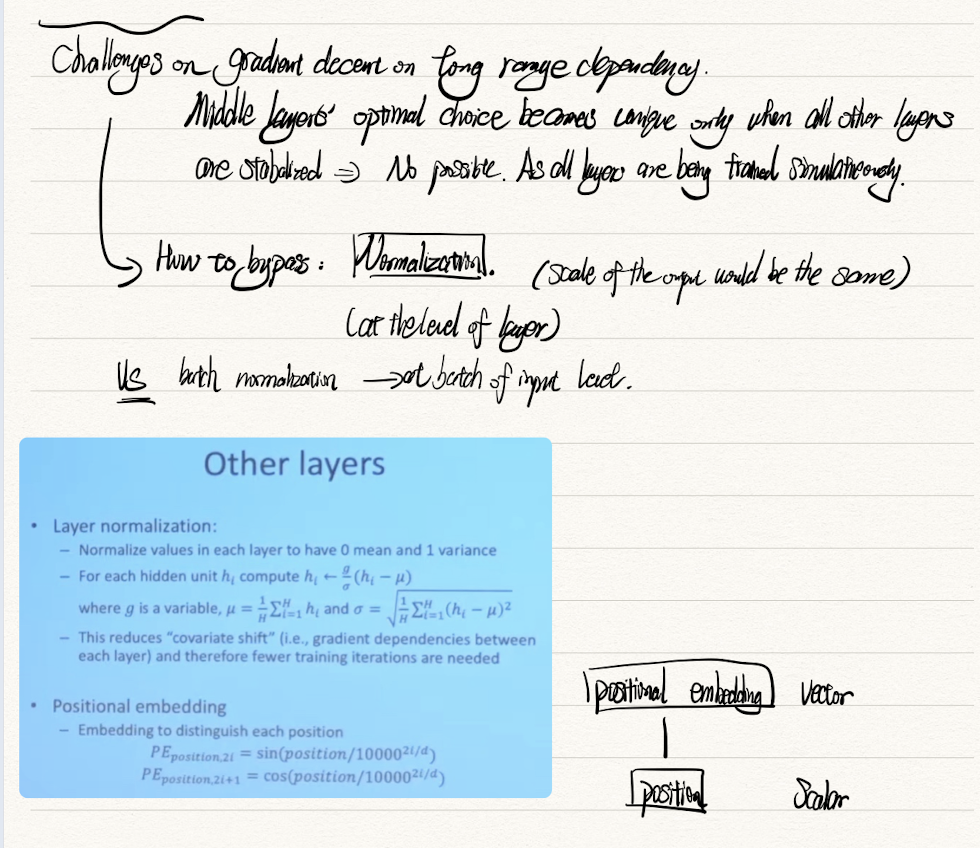 Challenges on gradient decent on long range dependency.
Middle layers' optimal choice becomes unique only when all other layers
are stabalized ⇒ No possible. As all layer are being trained simulatineously.
How to bypass : Normalization. (scale of the output would be the same)
(at the level of layer)
VS batch normalization → at batch of input level.
Other layers
• Layer normalization:
– Normalize values in each layer to have 0 mean and 1 variance
– For each hidden unit hᵢ compute hᵢ ← g/σ (hᵢ − μ)
where g is a variable, μ = 1/H Σᵢ₌₁ᴴ hᵢ and σ = √(1/H Σᵢ₌₁ᴴ (hᵢ − μ)²)
– This reduces "covariate shift" (i.e., gradient dependencies between
each layer) and therefore fewer training iterations are needed
• Positional embedding
– Embedding to distinguish each position
PE_position,2i = sin(position/10000^(2i/d))
PE_position,2i+1 = cos(position/10000^(2i/d))
positional embedding Vector
position Scalar